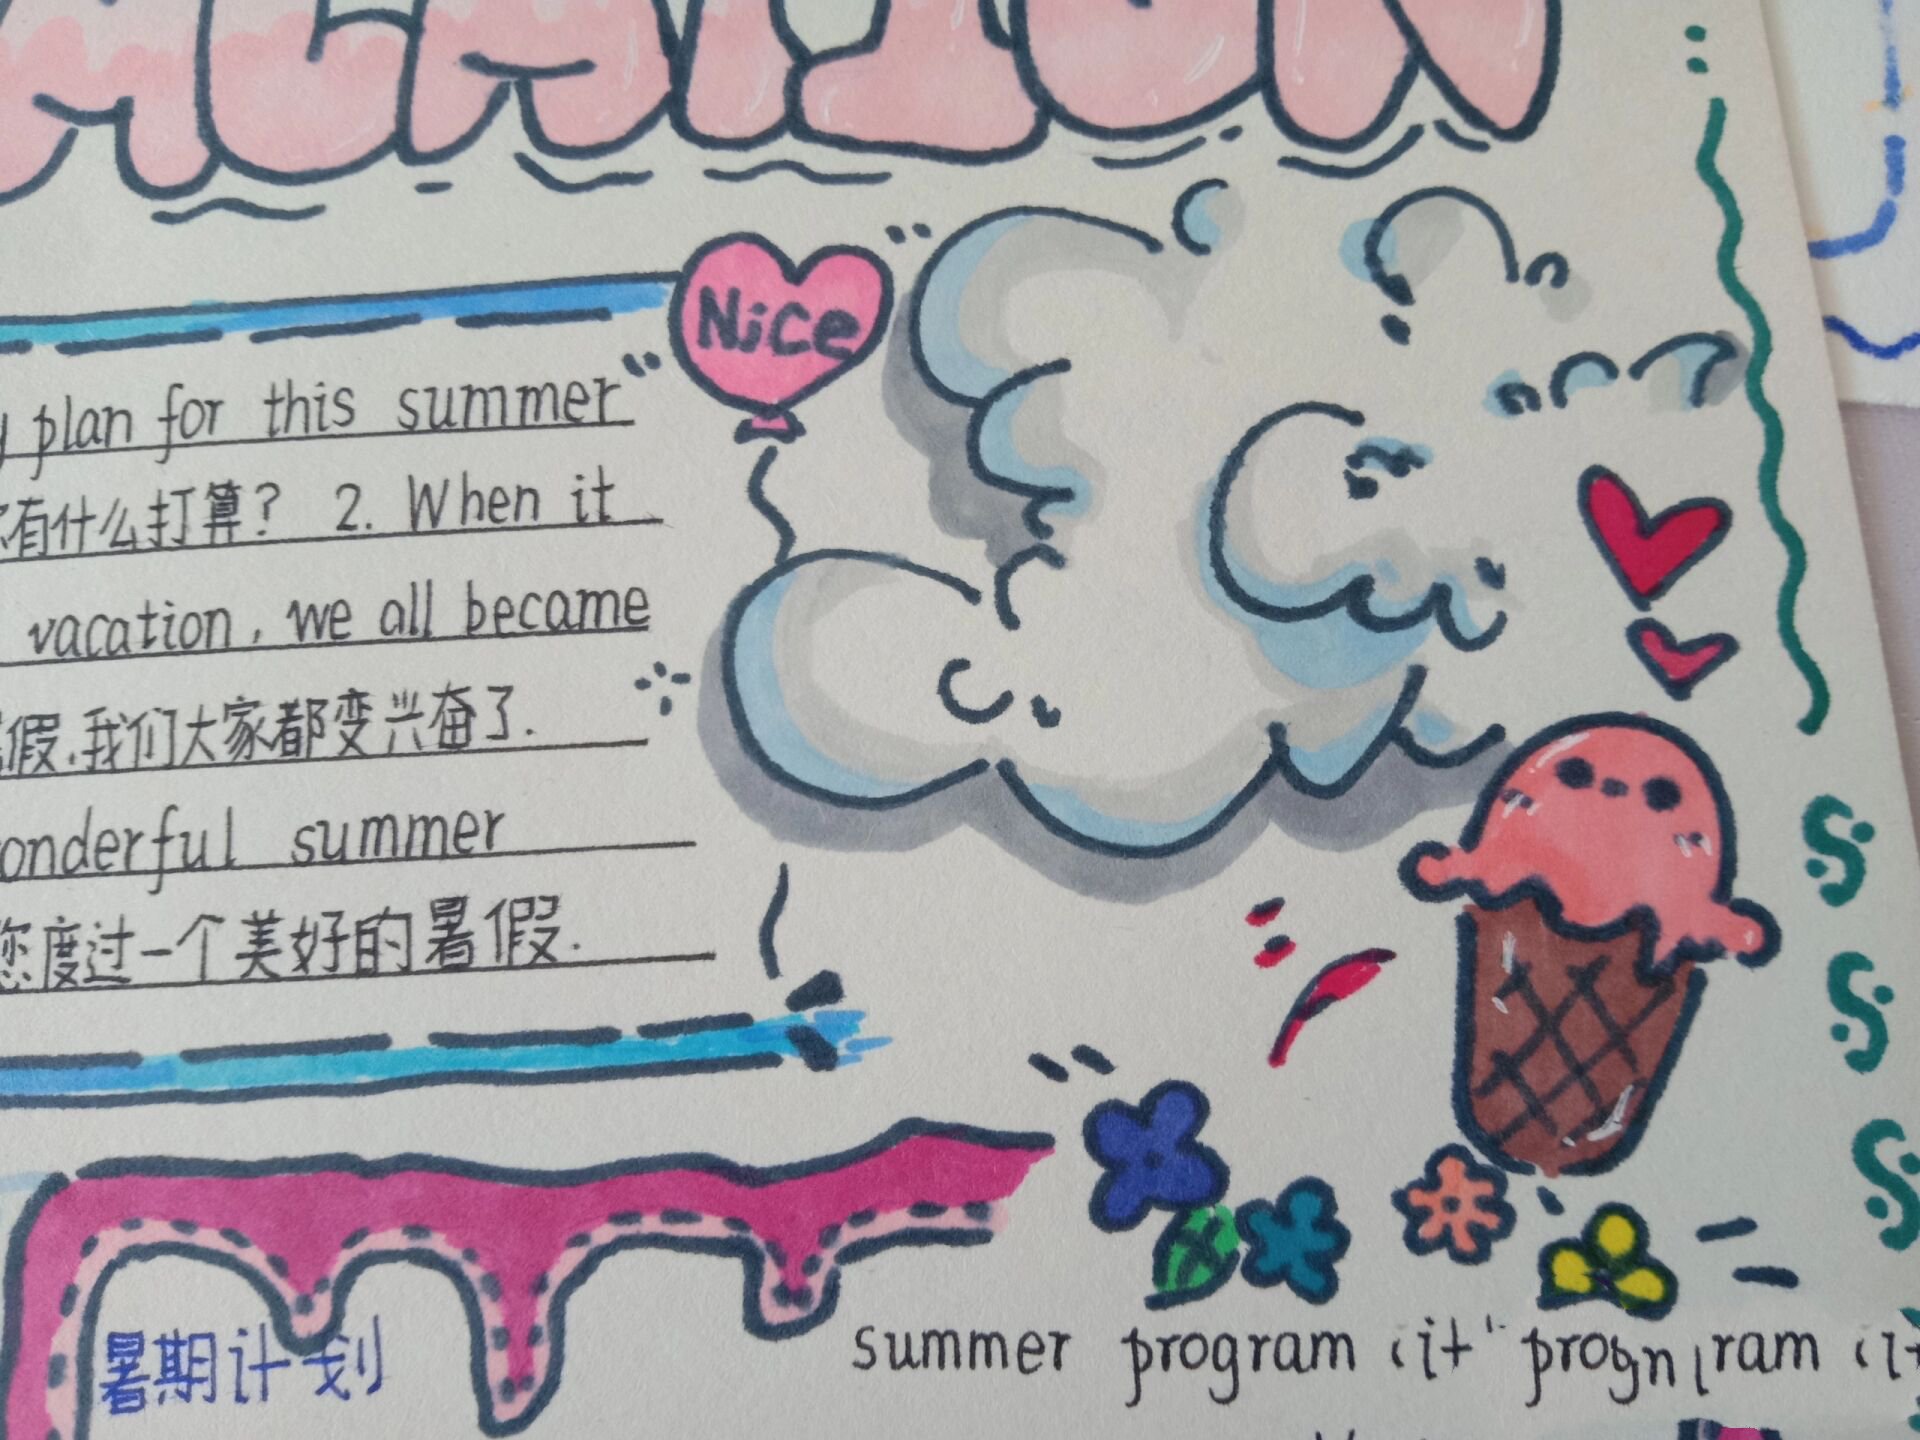 ACATION
Nice
plan for this summer
有什么打算? 2. When it
vacation, we all became
假,我们大家都变兴奋了.
onderful summer
您度过一个美好的暑假.
暑期计划
summer program
S
S
S